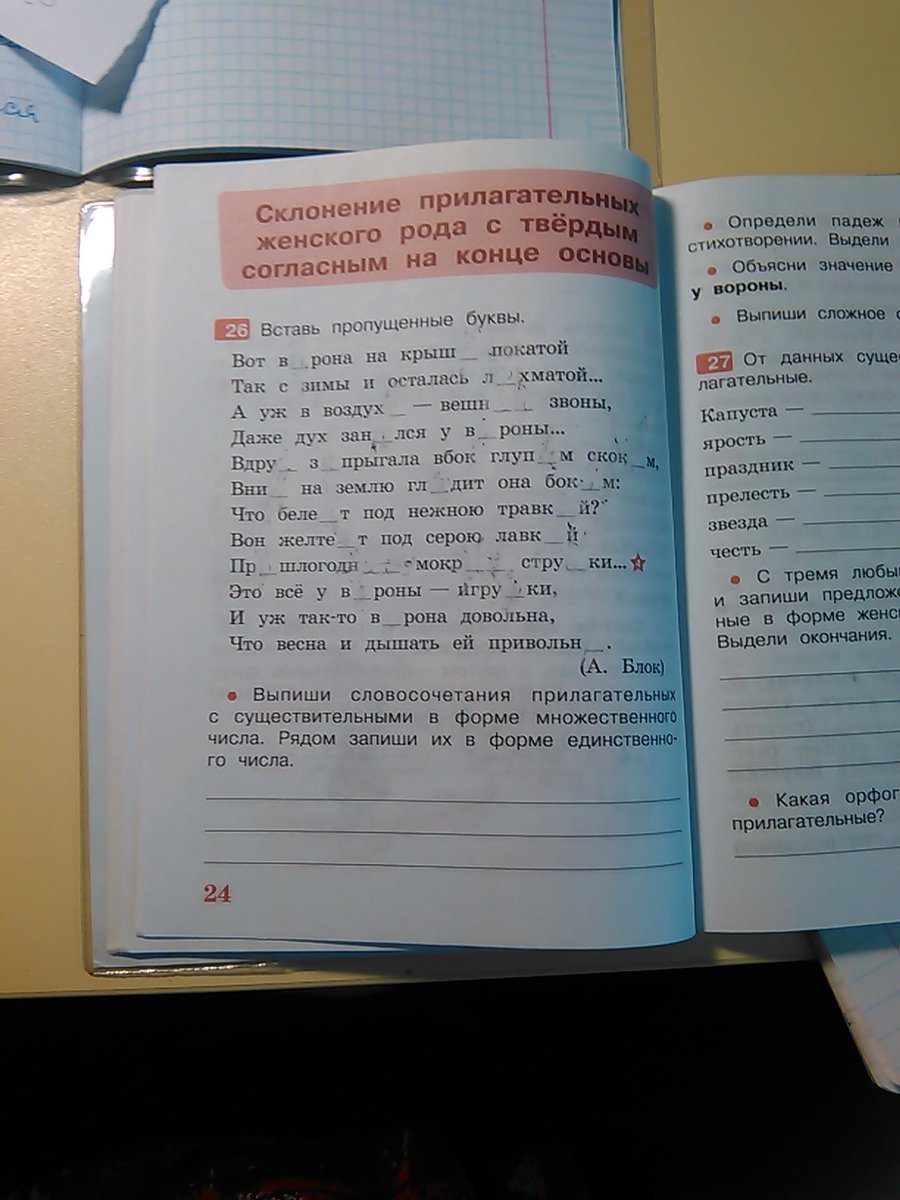 ся
Склонение прилагательных
женского рода с твёрдым
согласным на конце основы
26 Вставь пропущенные буквы.
Вот в_рона на крыш_ покатой
Так с зимы и осталась л_хматой...
А уж в воздух_ — вешн__ звоны,
Даже дух зан_лся у в_роны...
Вдру_ з_прыгала вбок глуп_м скок_м,
Вни_ на землю гл_дит она бок_м:
Что беле_т под нежною травк_й?
Вон желте_т под серою лавк_й
Пр_шлогодн__ мокр__ стру_ки... 4
Это всё у в_роны — игру_ки,
И уж так-то в_рона довольна,
Что весна и дышать ей привольн_.
(А. Блок)
• Выпиши словосочетания прилагательных
с существительными в форме множественного
числа. Рядом запиши их в форме единственно-
го числа.
24
• Определи падеж
стихотворении. Выдели
• Объясни значение
у вороны.
• Выпиши сложное
27 От данных сущес
лагательные.
Капуста —
ярость —
праздник —
прелесть —
звезда —
честь —
• С тремя любы
и запиши предложе
ные в форме женс
Выдели окончания.
• Какая орфог
прилагательные?